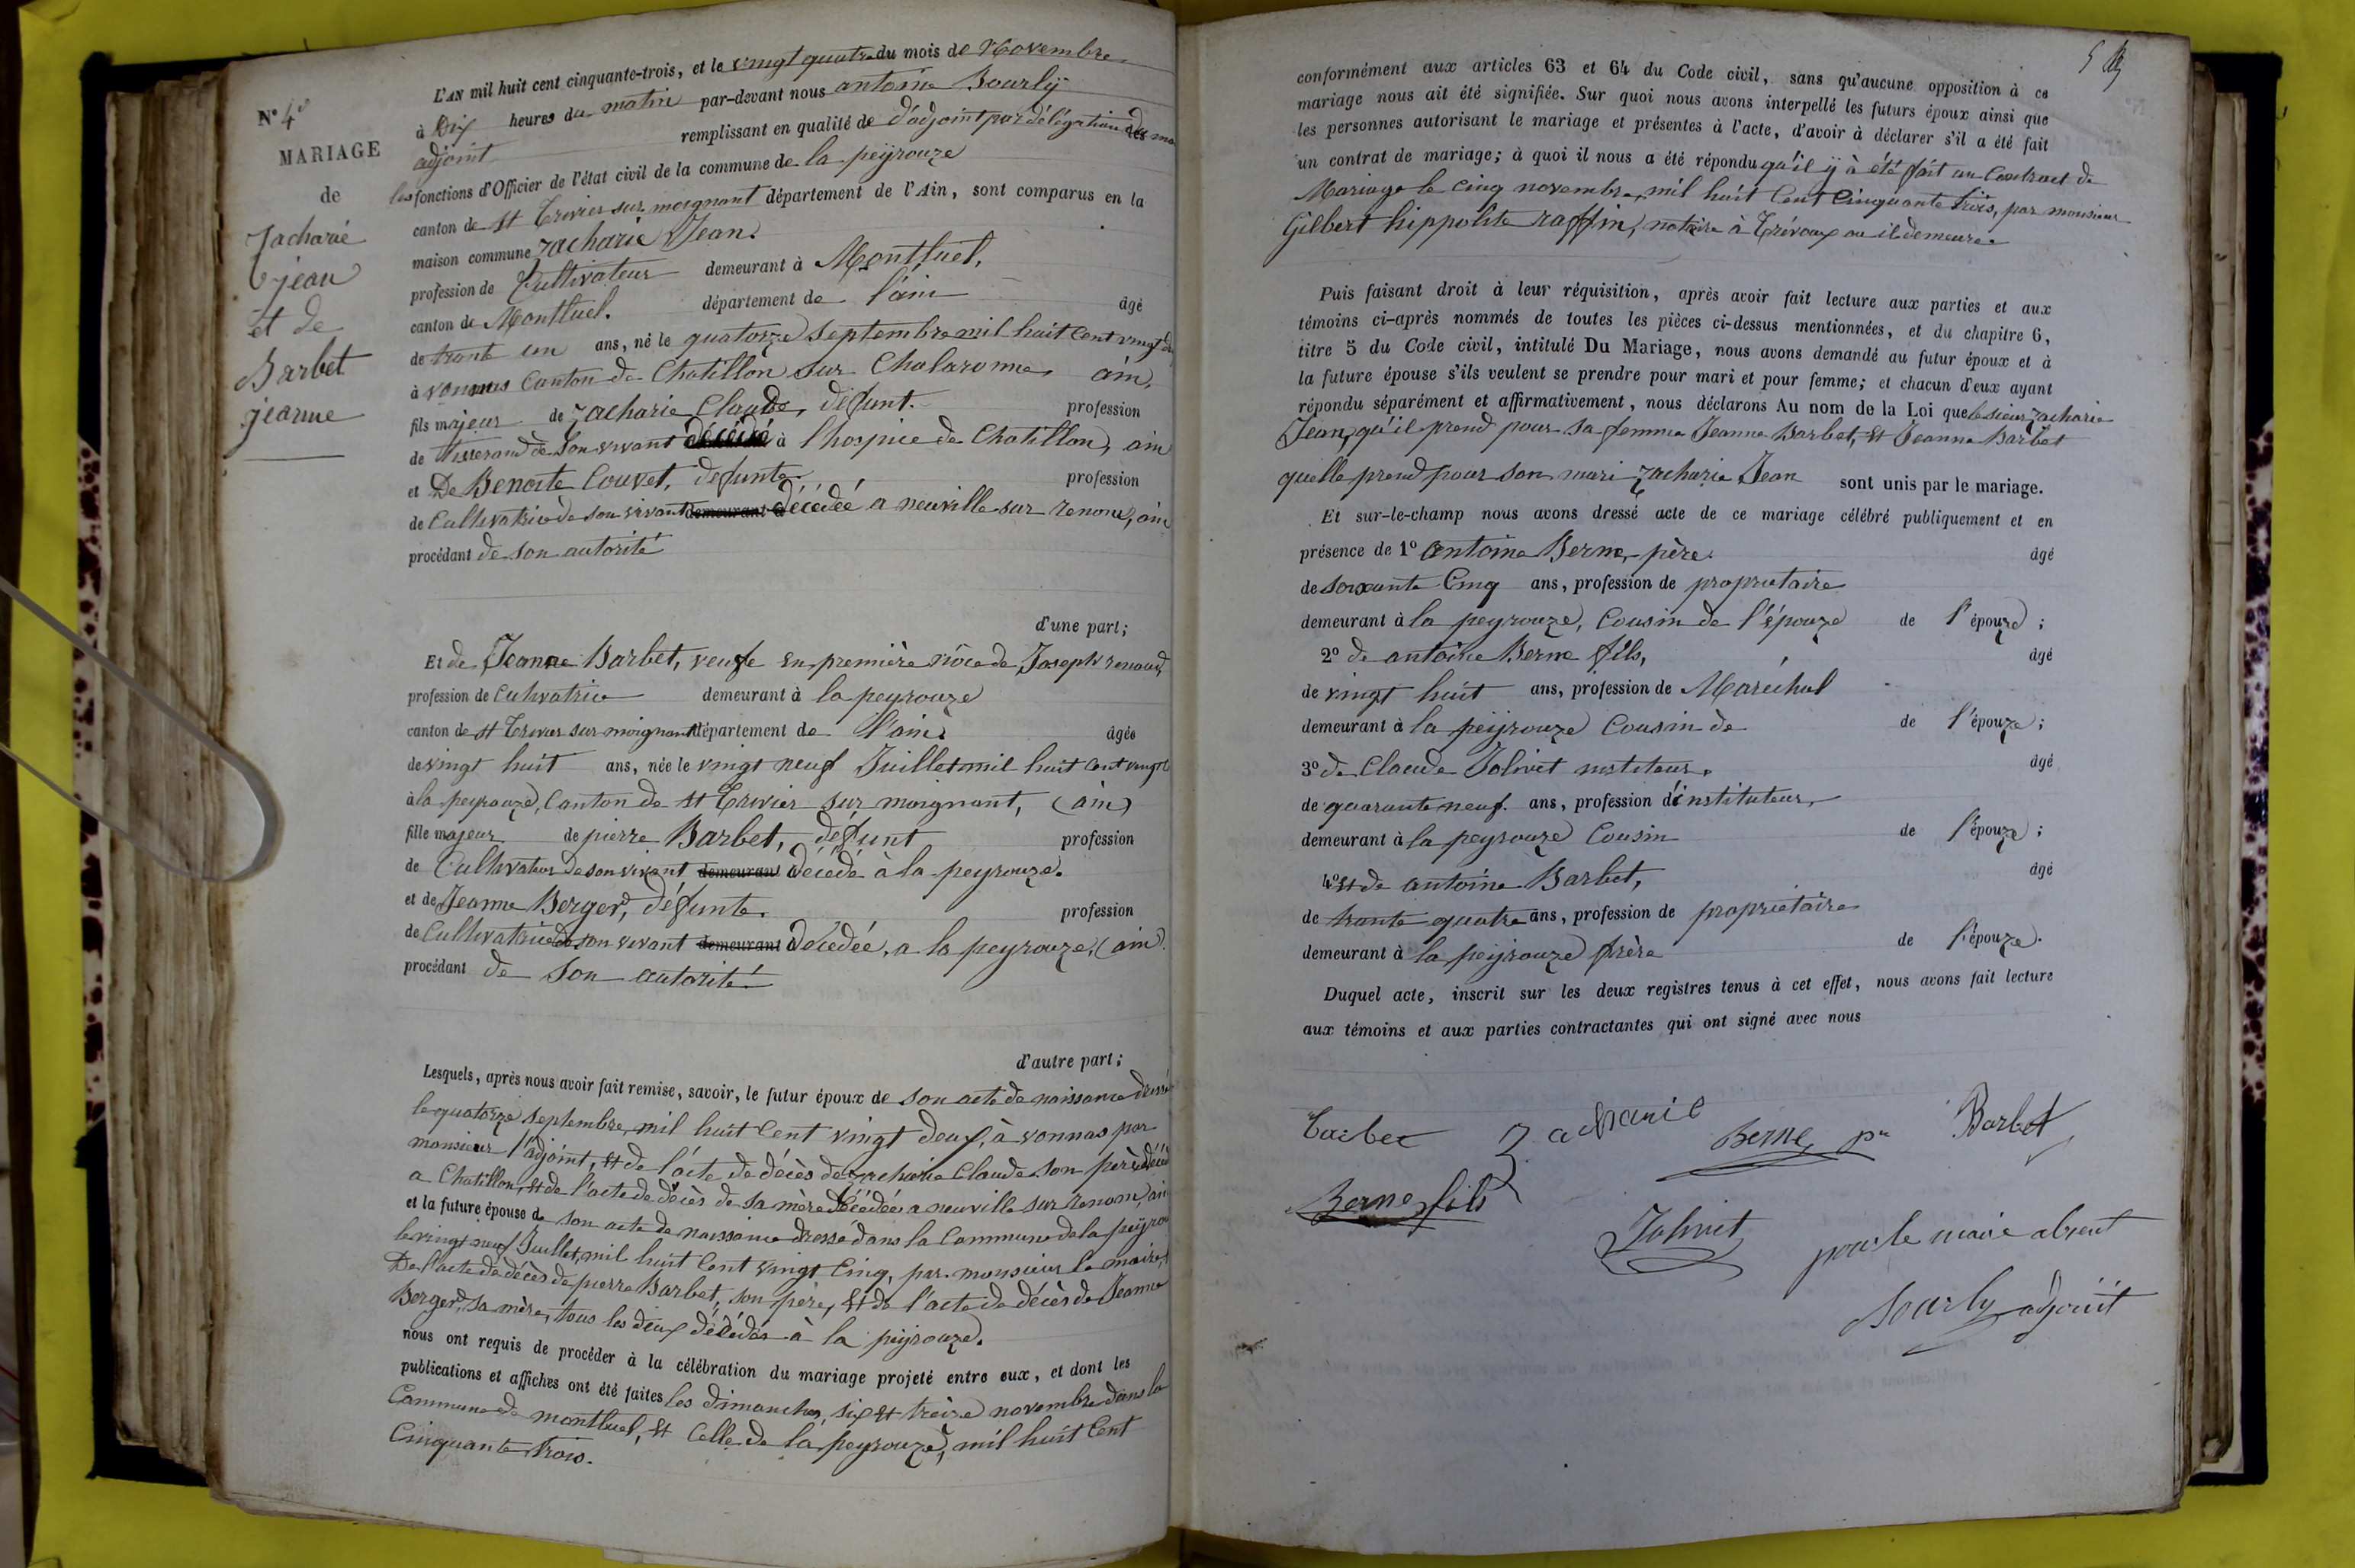 N° 4
MARIAGE
de
Zacharie
jean
et de
Barbet
jeanne
L'AN mil huit cent cinquante-trois, et le vingt quatre du mois de Novembre
à Dix heures du matin par-devant nous antoine Bourlÿ
adjoint remplissant en qualité de d'adjoint par délégation
les fonctions d'Officier de l'état civil de la commune de la peÿrouze
canton de St Trivier sur moignant département de l'Ain, sont comparus en la
maison commune zacharie Jean.
profession de Cultivateur demeurant à Montluel,
canton de Montluel. département de l'ain âgé
de trante un ans, né le quatorze septembre mil huit cent vingt
à vonnas Canton de Chatillon sur Chalaronne ain,
fils majeur de zacharie Claude, défunt. profession
de tisserand de son vivant décédé à l'hospice de Chatillon, ain
et De Benoite Couvet, défunte profession
de Cultivatrice de son vivant demeurant à décédée a neuville sur renone, ain
procédant de son autorité
d'une part;
Et de Jeanne Barbet, veufe en première nôce de Joseph renaud,
profession de Cultivatrice demeurant à la peyrouze
canton de St Trivier sur moignant département de l'ain. âgée
de vingt huit ans, née le vingt neuf Juillet mil huit cent vingt
à la peyrouze, Canton de St Trivier sur moignant, (ain)
fille majeur de pierre Barbet, défunt profession
de Cultivateur de son vivant demeurant décédé à la peyrouze.
et de Jeanne Berger, défunte. profession
de Cultivatrice de son vivant demeurant décédée, a la peyrouze, (ain).
procédant de son autorité
d'autre part;
Lesquels, après nous avoir fait remise, savoir, le futur époux de son acte de naissance dressé
le quatorze septembre, mil huit cent vingt deux, à vonnas par
monsieur l'adjoint, et de l'acte de décès de zacharie Claude son père décédé
a Chatillon, et de l'acte de décès de sa mère décédée a neuville sur renom, ain
et la future épouse de son acte de naissance dressé dans la Commune de la peÿrou
le vingt neuf Juillet, mil huit cent vingt Cinq, par monsieur le maire,
De l'acte de décès de pierre Barbet, son père, et de l'acte de décès de Jeanne
Berger, sa mère, tous les deux décédés à la peÿrouze.
nous ont requis de procéder à la célébration du mariage projeté entre eux, et dont les
publications et affiches ont été faites les dimanches, six et treize novembre dans la
Commune de montluel, et Celle de la peyrouze, mil huit Cent
Cinquante trois.
conformément aux articles 63 et 64 du Code civil, sans qu'aucune opposition à ce
mariage nous ait été signifiée. Sur quoi nous avons interpellé les futurs époux ainsi que
les personnes autorisant le mariage et présentes à l'acte, d'avoir à déclarer s'il a été fait
un contrat de mariage; à quoi il nous a été répondu qu'il ÿ à été fait un Contract de
Mariage le cinq novembre, mil huit Cent Cinquante trois, par monsieur
Gilbert hippolite raffin, notaire à Trévoux ou il demeure.
Puis faisant droit à leur réquisition, après avoir fait lecture aux parties et aux
témoins ci-après nommés de toutes les pièces ci-dessus mentionnées, et du chapitre 6,
titre 5 du Code civil, intitulé Du Mariage, nous avons demandé au futur époux et à
la future épouse s'ils veulent se prendre pour mari et pour femme; et chacun d'eux ayant
répondu séparément et affirmativement, nous déclarons Au nom de la Loi que le sieur zacharie
Jean, qu'il prend pour sa femme Jeanne Barbet, et Jeanne Barbet
quelle prend pour son mari zacharie Jean sont unis par le mariage.
Et sur-le-champ nous avons dressé acte de ce mariage célébré publiquement et en
présence de 1° antoine Berne, père. âgé
de soixante Cinq ans, profession de propriétaire
demeurant à la peyrouze, Cousin de l'épouze de l'épouze;
2° de antoine Berne fils, âgé
de vingt huit ans, profession de Maréchal
demeurant à la peÿrouze Cousin de de l'épouze;
3° de Claude Jolivet instituteur. âgé
de quarante neuf. ans, profession d'instituteur,
demeurant à la peyrouze Cousin de l'épouze;
4° et de antoine Barbet, âgé
de trante quatre ans, profession de propriétaire
demeurant à la peÿrouze frère de l'épouze.
Duquel acte, inscrit sur les deux registres tenus à cet effet, nous avons fait lecture
aux témoins et aux parties contractantes qui ont signé avec nous
Barbet Zacharie Berne pr Barbet
Berne fils
Jolivet pour le maire absent
Bourly adjoint